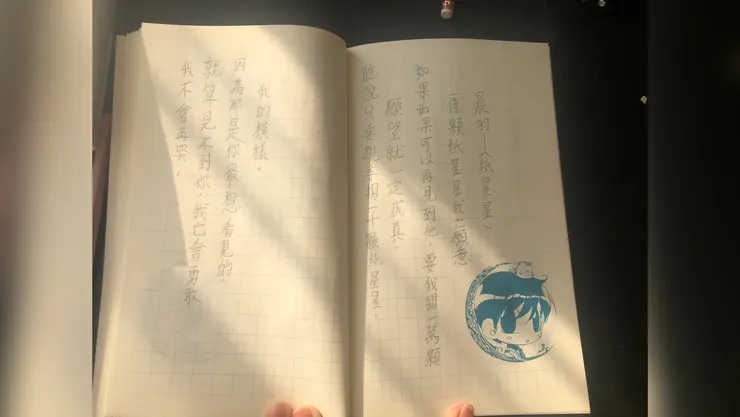 我不會再哭，
就算見不到你，我也會勇敢
因為那是你最想看見的，
我的模樣。
聽說只要親手摺一千顆紙星星，
願望就一定成真。
如果如果可以再見到他，要我摺一萬顆
一億顆紙星星我也願意
晨羽—〈紙星星〉